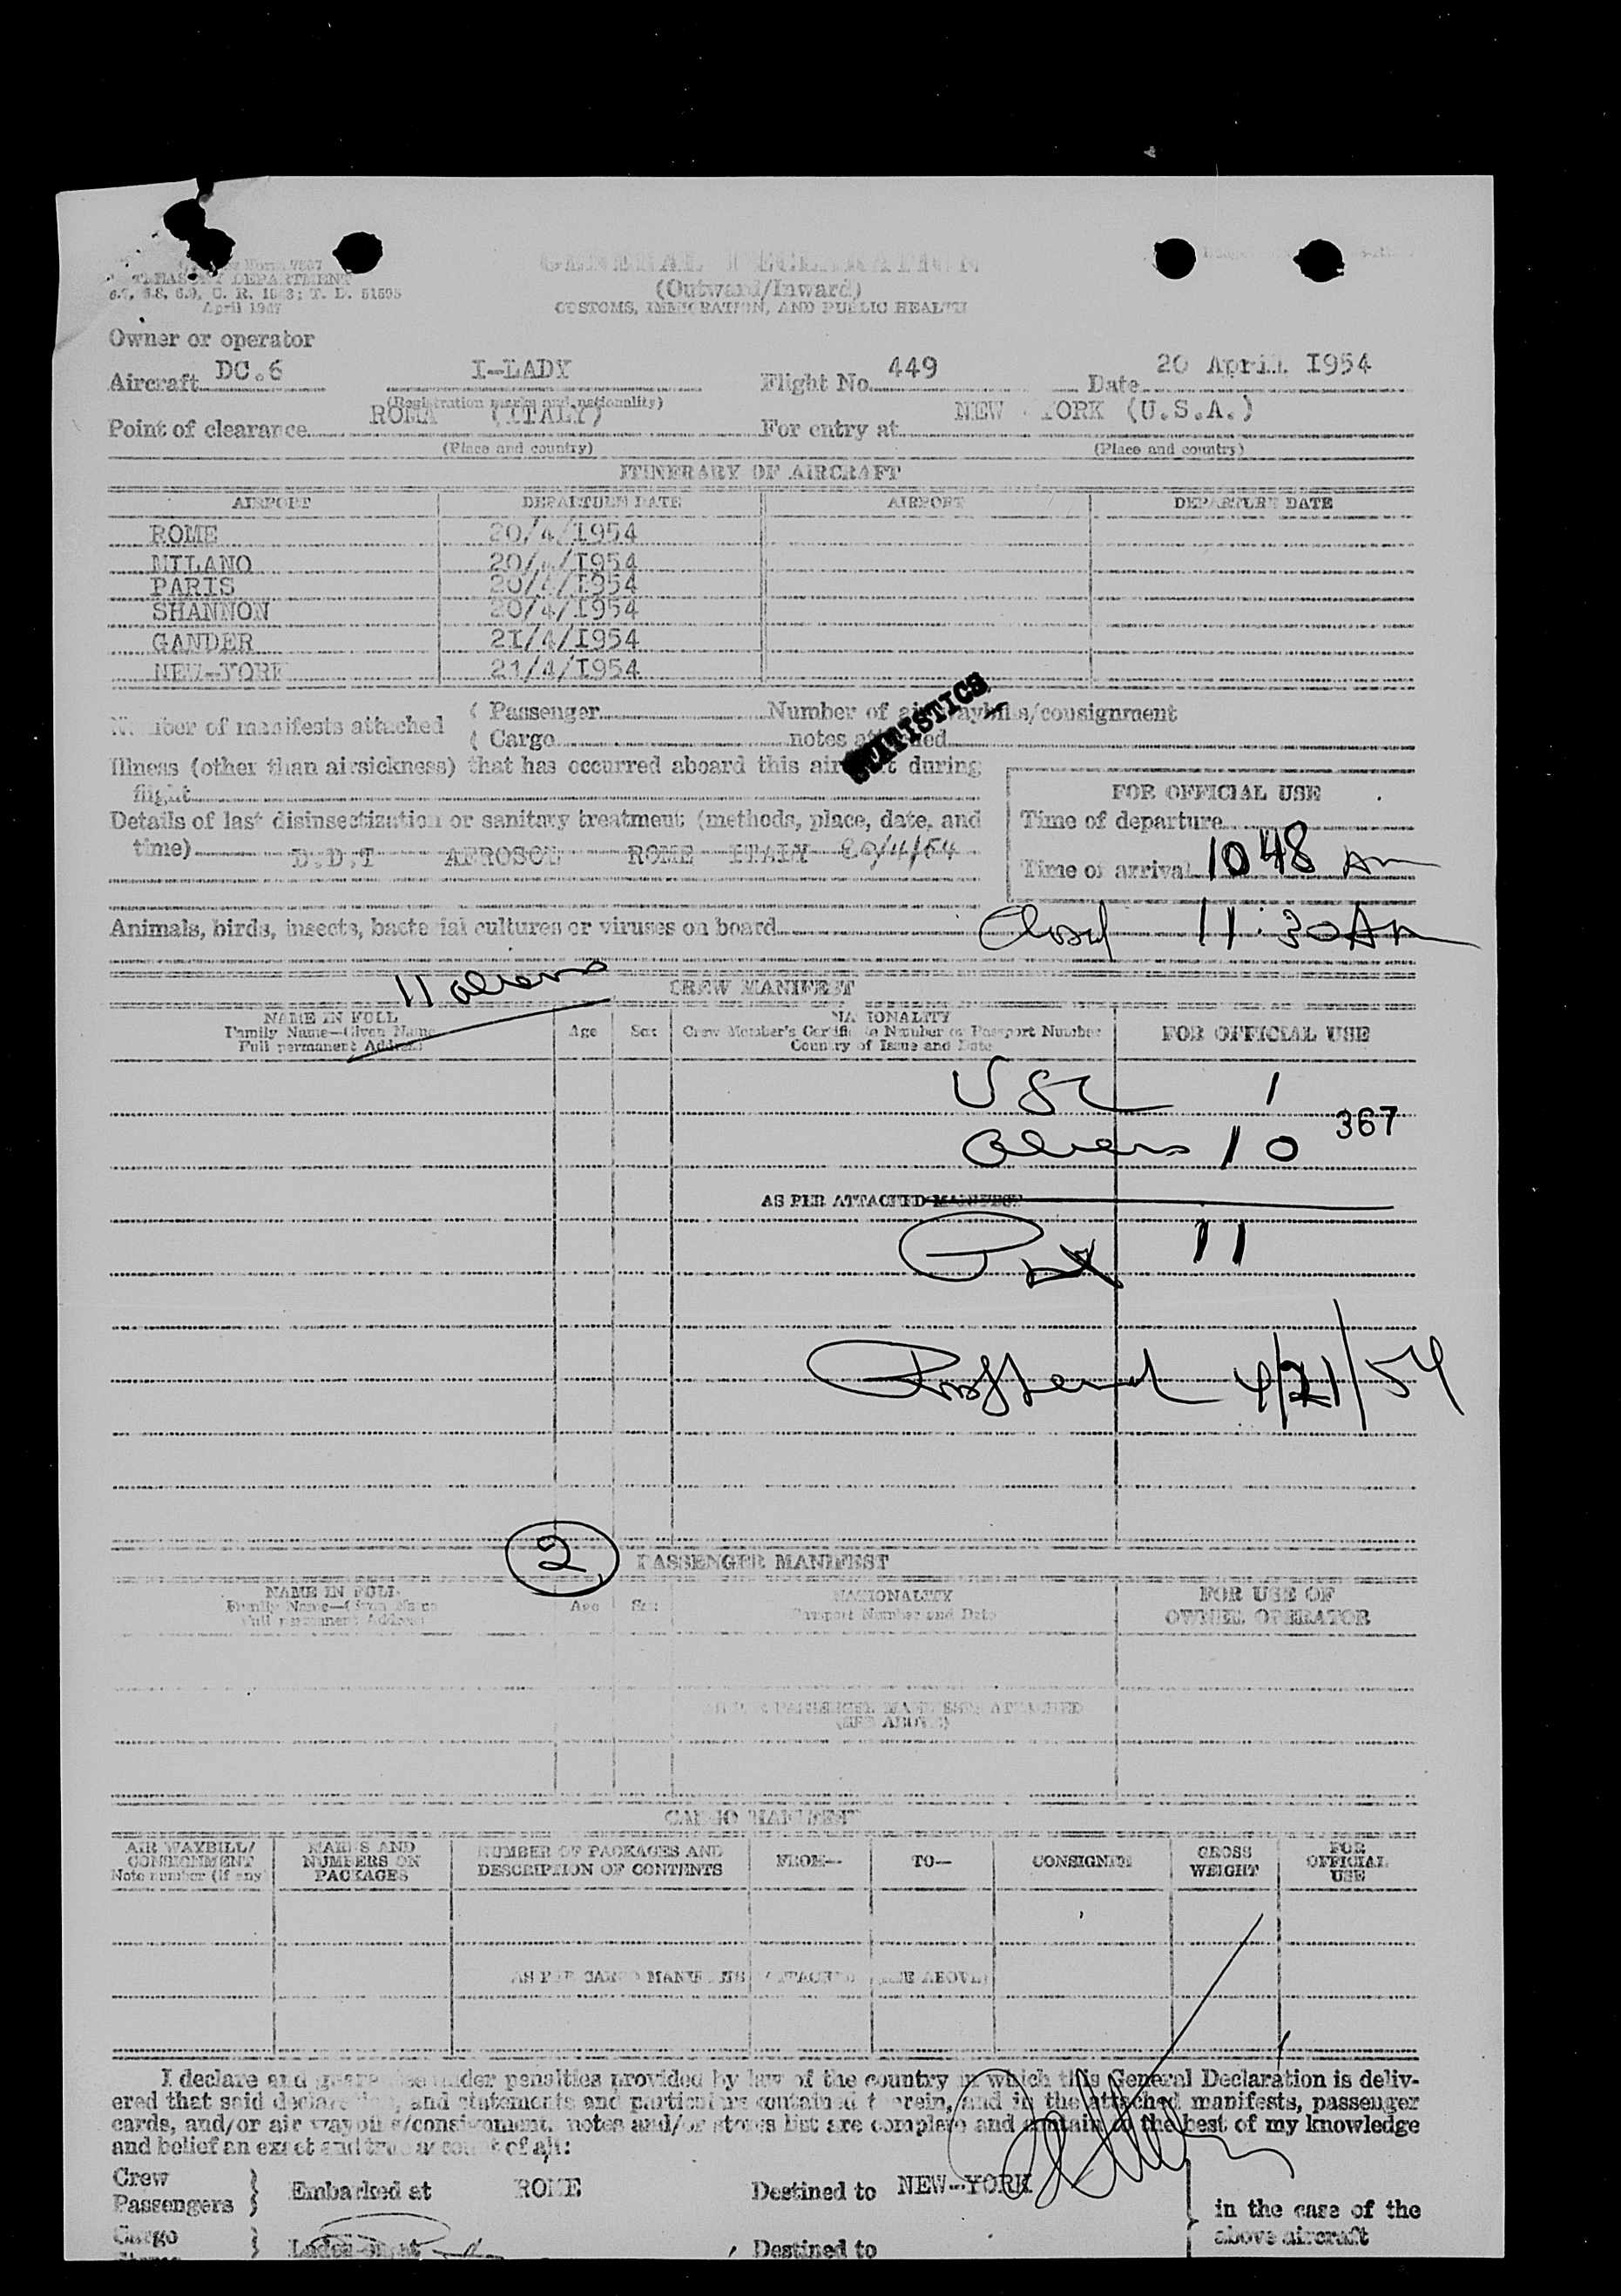 TREASURY DEPARTMENT
6.7, 6.8, 6.9, C. R. 1943; T. D. 51595
April 1947
GENERAL DECLARATION
(Outward/Inward)
CUSTOMS, IMMIGRATION, AND PUBLIC HEALTH
Owner or operator
Aircraft DC.6 I-LADY Flight No. 449 Date 20 April 1954
(Registration marks and nationality)
Point of clearance ROMA (ITALY) For entry at NEW YORK (U.S.A.)
(Place and country) (Place and country)
ITINERARY OF AIRCRAFT
AIRPORT DEPARTURE DATE AIRPORT DEPARTURE DATE
ROME 20/4/1954
MILANO 20/4/1954
PARIS 20/4/1954
SHANNON 20/4/1954
GANDER 21/4/1954
NEW-YORK 21/4/1954
Number of manifests attached ( Passenger Number of air waybills/consignment
( Cargo notes attached
STATISTICS
Illness (other than airsickness) that has occurred aboard this aircraft during
flight
Details of last disinsectization or sanitary treatment (methods, place, date, and
time) D.D.T AEROSOL ROME ITALY 20/4/54
FOR OFFICIAL USE
Time of departure
Time of arrival 10 48 AM
Animals, birds, insects, bacterial cultures or viruses on board
Closed 11:30 AM
11 aliens
CREW MANIFEST
NAME IN FULL
Family Name—Given Name
Full permanent Address
Age Sex
NATIONALITY
Crew Member's Certificate Number or Passport Number
Country of Issue and Date
FOR OFFICIAL USE
USC 1
367
Aliens 10
AS PER ATTACHED MANIFEST
11
4/21/54
2
PASSENGER MANIFEST
NAME IN FULL
Family Name—Given Name
Full permanent Address
Age Sex
NATIONALITY
Passport Number and Date
FOR USE OF
OWNER OPERATOR
AS PER PASSENGER MANIFESTS ATTACHED
(SEE ABOVE)
CARGO MANIFEST
AIR WAYBILL/
CONSIGNMENT
Note number (if any)
MARKS AND
NUMBERS ON
PACKAGES
NUMBER OF PACKAGES AND
DESCRIPTION OF CONTENTS
FROM—
TO—
CONSIGNEE
GROSS
WEIGHT
FOR
OFFICIAL
USE
AS PER CARGO MANIFESTS ATTACHED (SEE ABOVE)
I declare and guarantee under penalties provided by law of the country in which this General Declaration is deliv-
ered that said declaration, and statements and particulars contained therein, and in the attached manifests, passenger
cards, and/or air waybills/consignment, notes and/or stores list are complete and contain to the best of my knowledge
and belief an exact and true account of all:
Crew
Passengers } Embarked at ROME Destined to NEW-YORK
in the case of the
above aircraft
Cargo } Laden on at Destined to